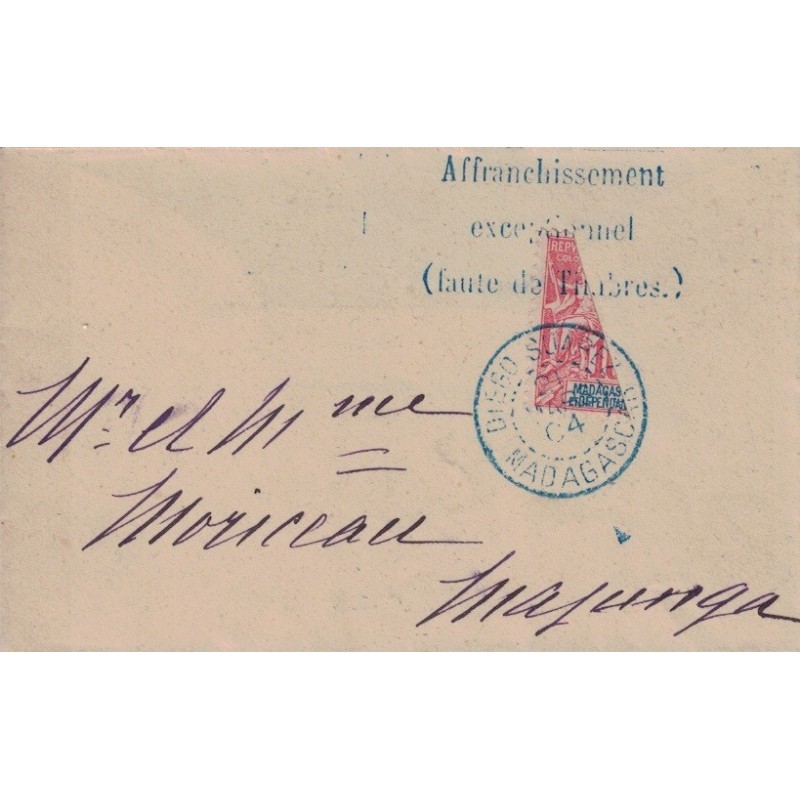 Affranchissement
exceptionnel
(faute de Timbres.)
REPV
COLO
MADAGAS
DÉPENDA
DIEGO SUAREZ
04
MADAGASCAR
Mr et Mme
Moriceau
Majunga